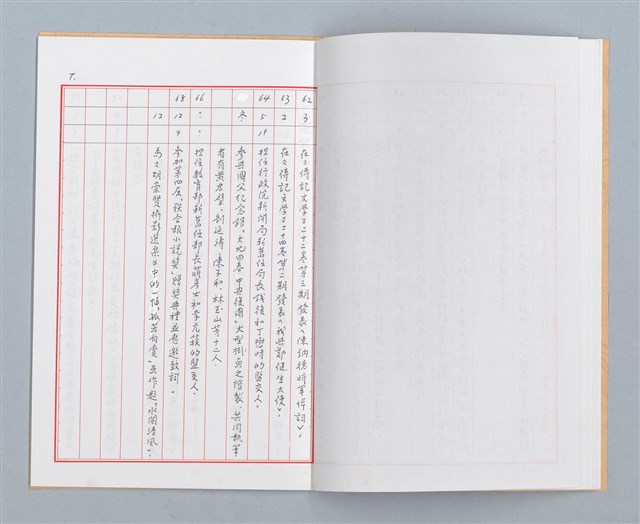 7.
62 3 在《傳記文學》二十二卷第三期發表〈陳納德將軍悼詞〉。
63 2 在《傳記文學》二十四卷第二期發表〈我與鄭健生大使〉。
64 5 19 擔任行政院新聞局新舊任局長錢復和丁懋時的監交人。
冬 參與國父紀念館,大地回春、中興復國」大型掛畫之繪製,共同執筆
者有黃君璧、劉延濤、陳子和、林玉山等十二人。
66 ? ? 擔任教育部新舊任部長蔣彥士和李元簇的監交人。
68 12 9 參加第四屆「聯合報小說獎」贈獎典禮並應邀致詞。
12 為《胡崇賢攝影選集》中的一幀「孤芳自賞」畫作題「水閣清風」。